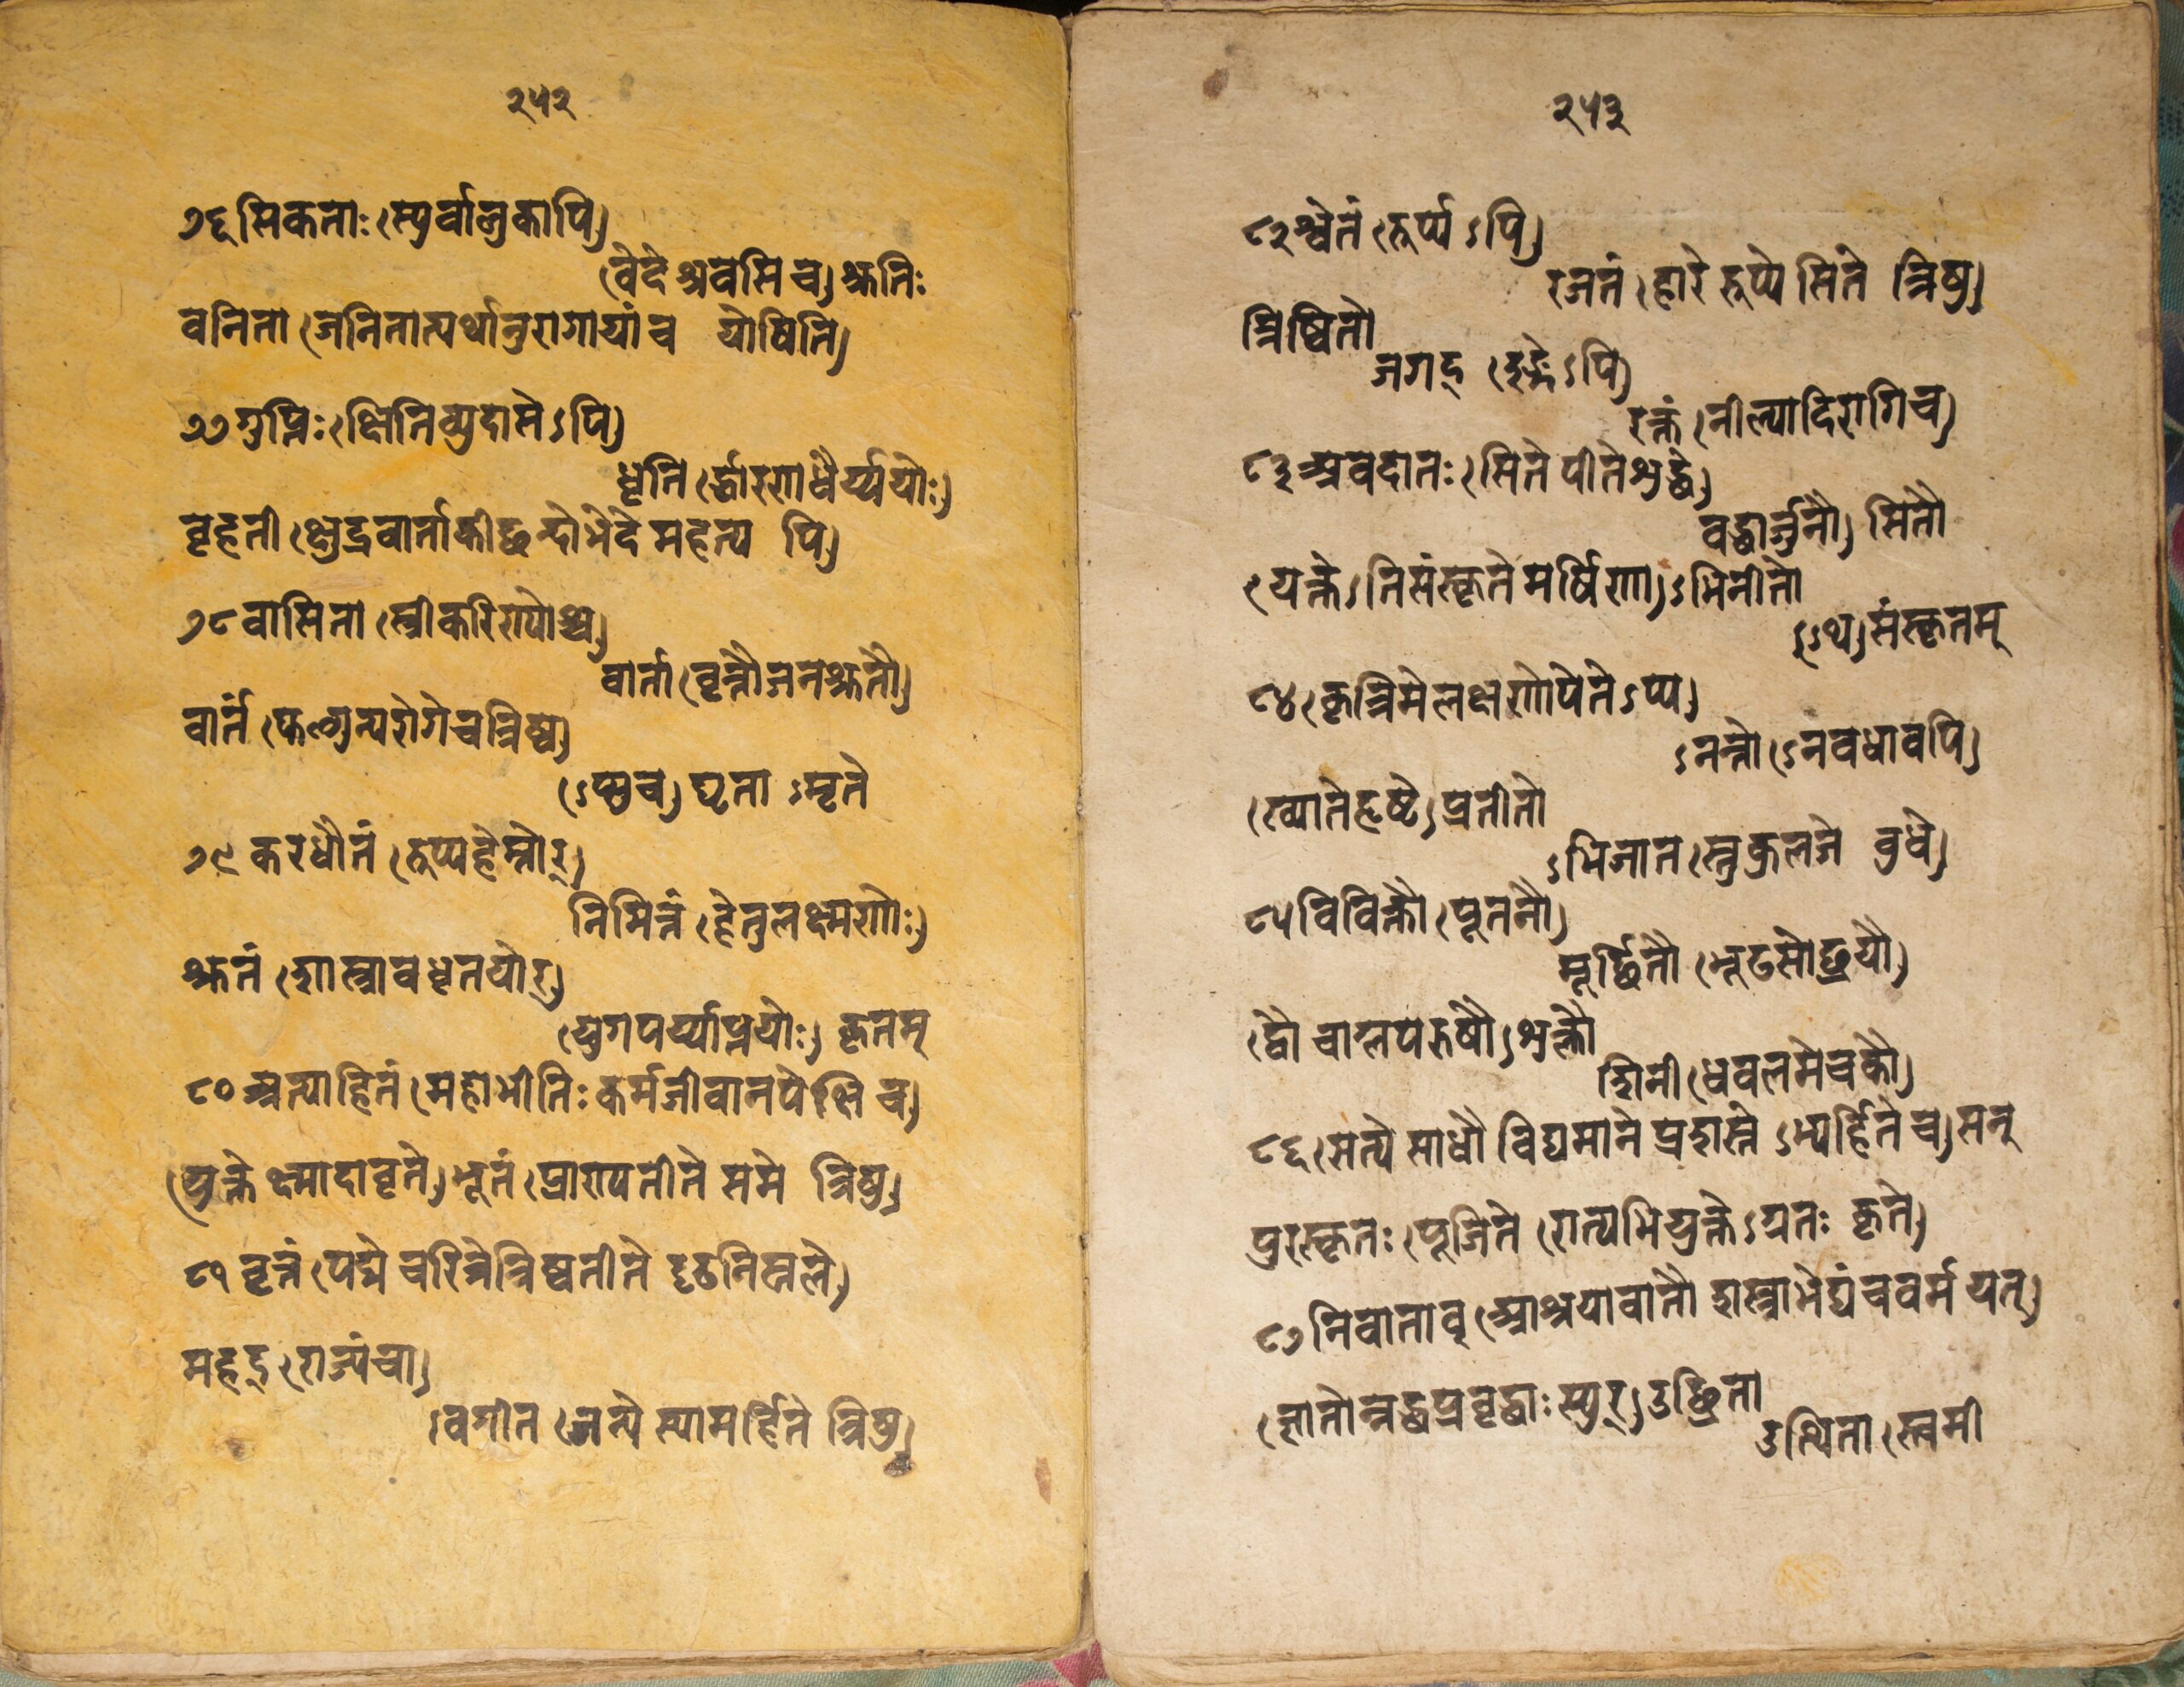 २५२
७६ सिकताः (स्युर्वालुकापि)
(वेदे श्रवसि च) श्रुतिः
वनिता (जनितात्यर्थानुरागायां च योषिति)
७७ गुप्तिः (क्षितिव्युदासे ऽपि)
धृति (र्द्धारणाधैर्य्ययोः)
वृहती (क्षुद्रवार्ताकी छन्दोभेदे महत्य पि)
७८ वासिता (स्त्रीकरिण्योश्च)
वार्ता (वृत्तौ जनश्रुतौ)
वार्तं (फल्गुन्यरोगे च त्रिष्व)
(ऽप्सु च) घृता ऽमृते
७९ कलधौतं (रूप्यहेम्नोर्)
निमित्तं (हेतुलक्ष्मणोः)
श्रुतं (शास्त्रावधृतयोर्)
(युगपर्य्याप्तयोः) कृतम्
८० अत्याहितं (महाभीतिः कर्म जीवानपेक्षि च)
(युक्ते क्ष्मादावृते) भूतं (प्राण्यतीते समे त्रिषु)
८१ वृत्तं (पद्ये चरित्रे त्रिष्वतीते दृढनिस्तले)
महद् (राज्यं चा)
ऽवगीतं (जन्ये स्याद्गर्हिते त्रिषु)
२५३
८२ श्वेतं (रूप्ये ऽपि)
रजतं (हारे रूप्ये सिते त्रिषु)
त्रिष्वितो
जगद् (इङ्गे ऽपि)
रक्तं (नील्यादिरागि च)
८३ अवदातः (सिते पीते शुद्धे)
वद्धार्जुनौ) सितौ
(युक्ते ऽतिसंस्कृते मर्षिणा) ऽभिनीतो
(ऽथ) संस्कृतम्
८४ (कृत्रिमे लक्षणोपेते ऽप्य)
ऽनन्तो (ऽनवधावपि)
(ख्याते हृष्टे) प्रतीतो
ऽभिजात (स्तु कुलजे वुधे)
८५ विविक्तौ (पूत नौ)
मूर्च्छितौ (मूढसोच्छ्रयौ)
(द्वौ चाम्लपरुषौ) शुक्तौ
शिती (धवलमेचकौ)
८६ (सत्ये साधौ विद्यमाने प्रशस्ते ऽभ्यर्हिते च) सत्
पुरस्कृतः (पूजिते रात्यभियुक्ते ऽग्रतः कृते)
८७ निवाताव् (आश्रयावातौ शस्त्राभेद्यं च वर्म यत्)
(जातोन्नद्धप्रवृद्धाः स्युर्) उच्छ्रिता
उत्थिता (स्त्वमी